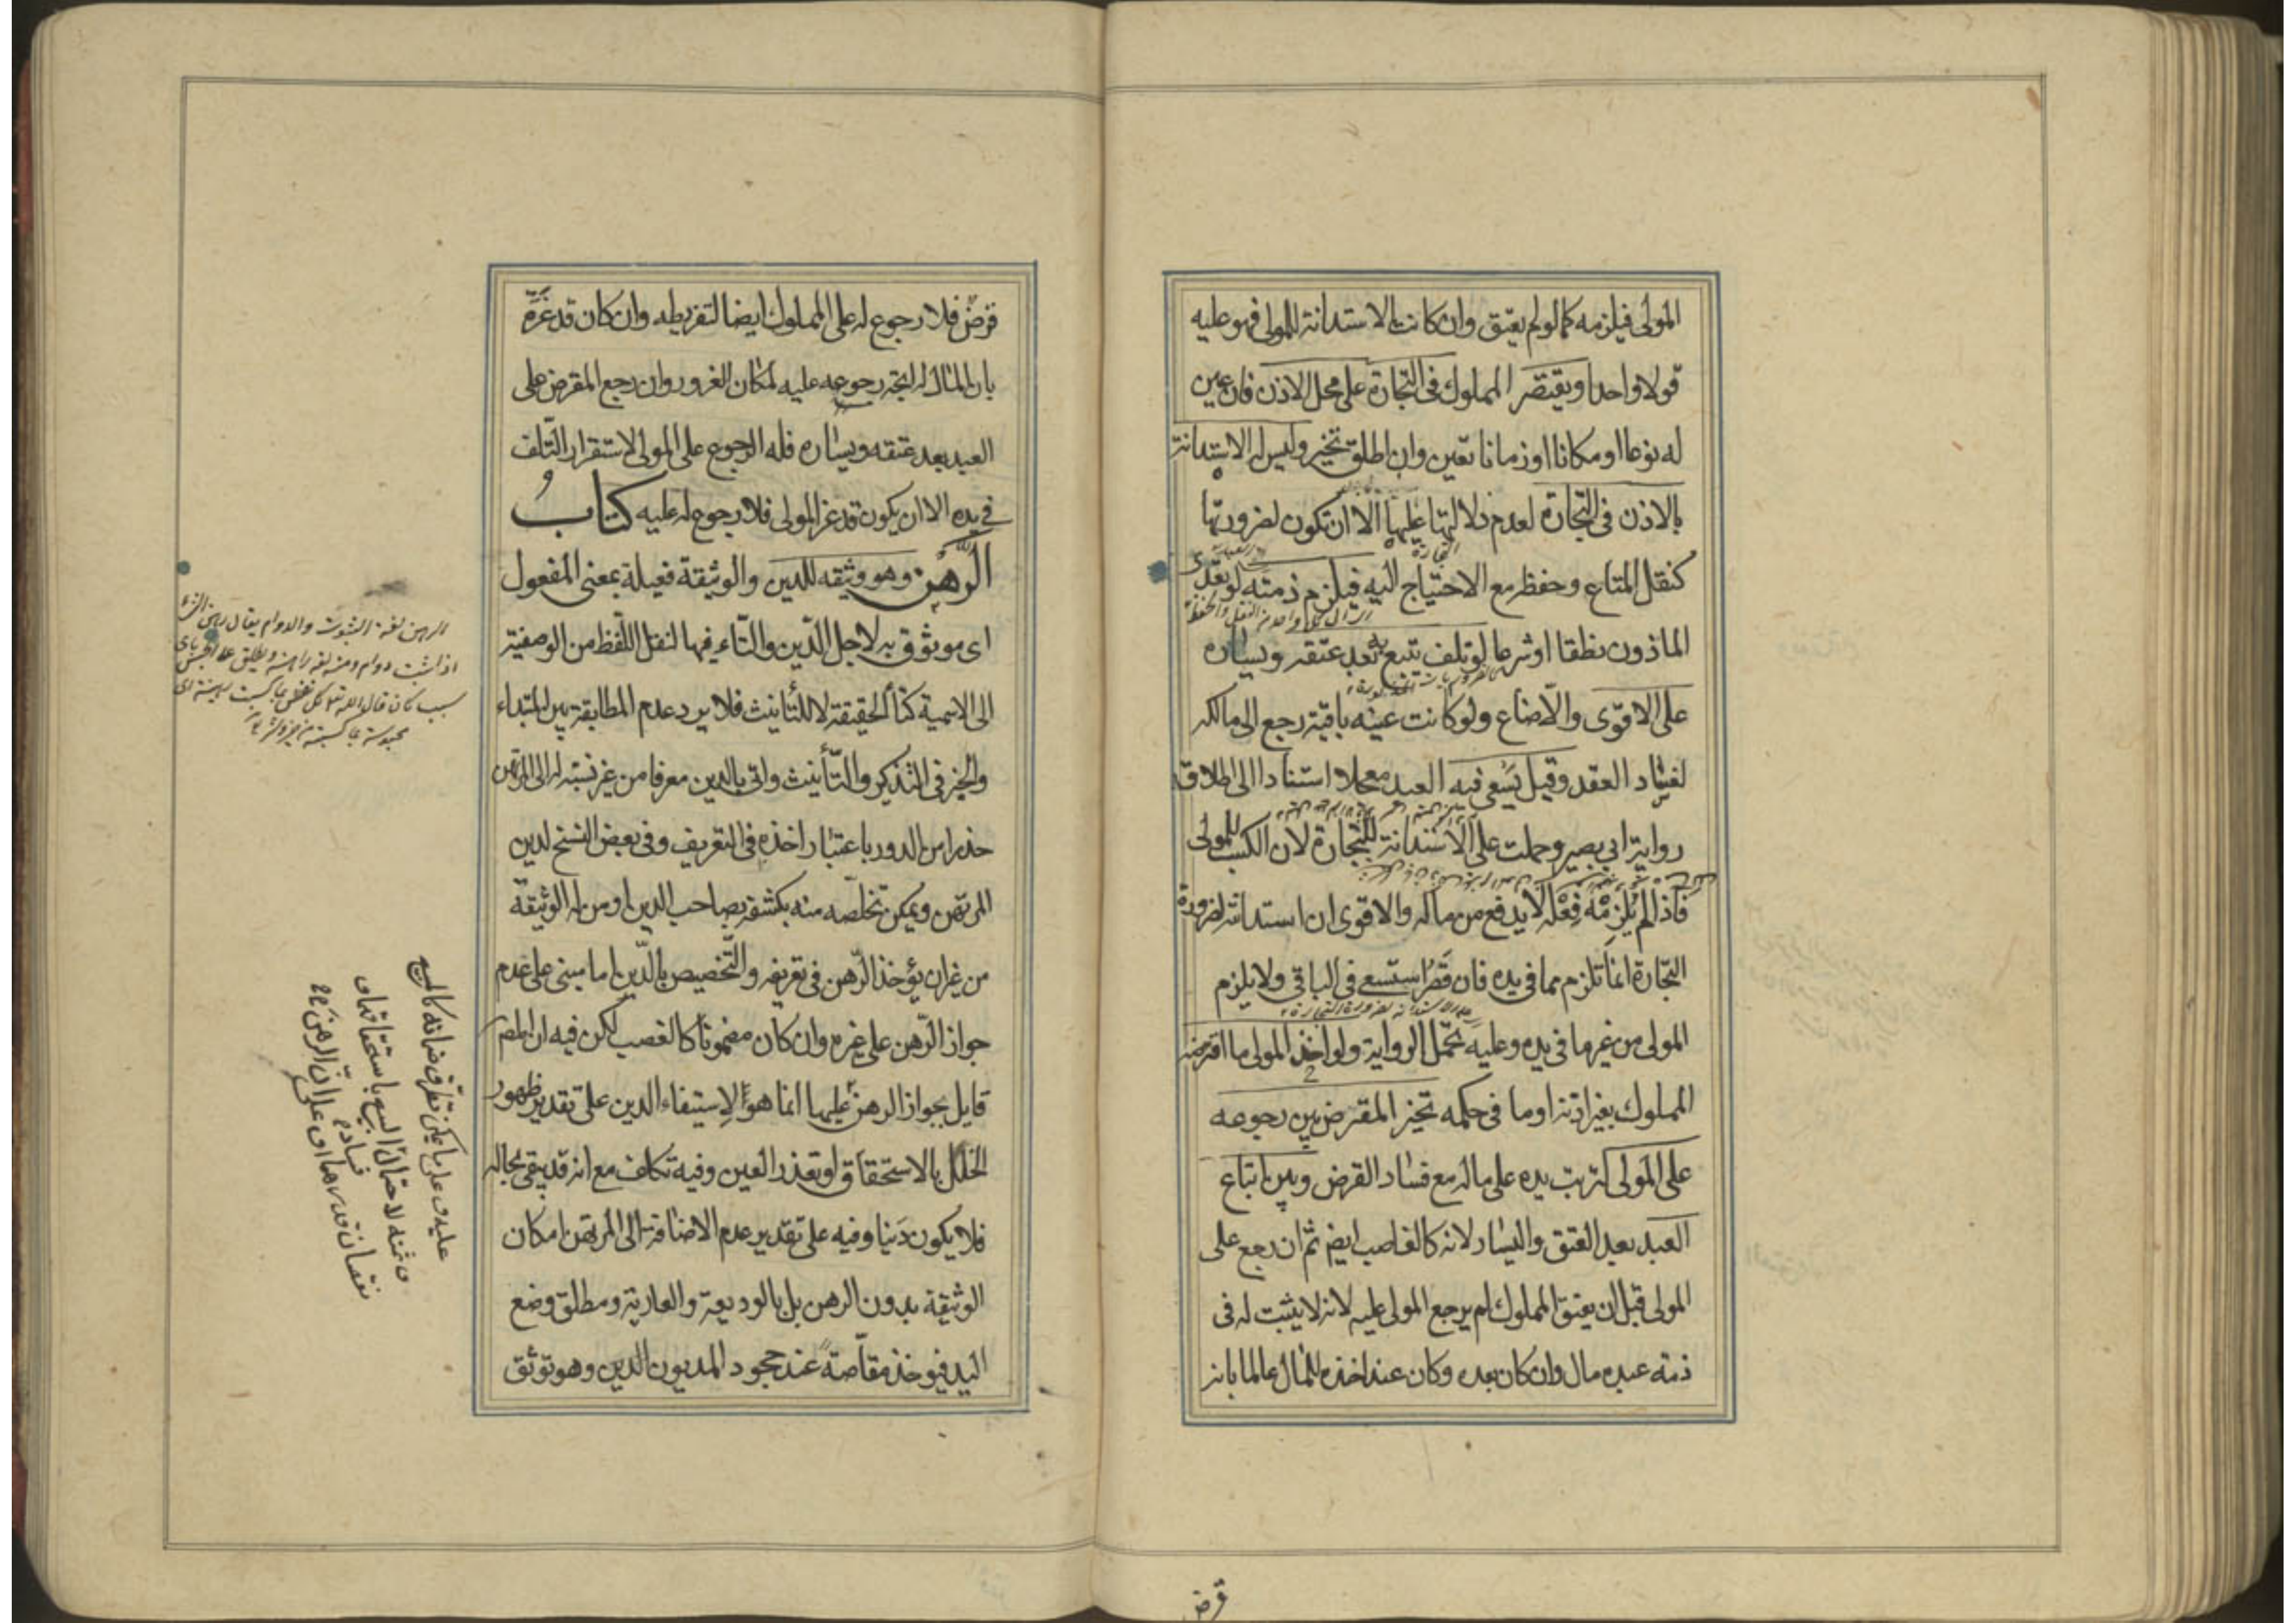 المولى فيلزمه كما لو لم يعتق وان كانت الاستدانة للمولى فهو عليه
قولا واحدا ويقتصر المملوك فى التجارة على محل الاذن فان عين
له نوعا او مكانا او زمانا تعين وان اطلق تخير وليس له الاستدانة
بالاذن فى التجارة لعدم دلالتها عليها الا ان تكون لضرورتها
كنقل المتاع وحفظه مع الاحتياج اليه فيلزم ذمته لو تعدى
الماذون نطقا او شرعا لو تلف يتبع به بعد عتقه ويساره
على الاقوى والا ضاع ولو كانت عينه باقية رجع الى مالكه
لفساد العقد وقيل يسعى فيه العبد معجلا استنادا الى اطلاق
رواية ابي بصير وحملت على الاستدانة للتجارة لان الكسب للمولى
فاذا لم يلزمه فعله لا يدفع من ماله والاقوى ان استدانته لضرورة
التجارة انما تلزم مما فى يده فان قصر استسعى فى الباقي ولا يلزم
المولى من غير ما فى يده وعليه تحمل الرواية ولو اخذ المولى ما اقترضه
المملوك بغير اذنه او ما فى حكمه تخير المقرض بين رجوعه
على المولى لترتب يده على ماله مع فساد القرض وبين اتباع
العبد بعد العتق واليسار لانه كالغاصب ايضا ثم ان رجع على
المولى قبل ان يعتق المملوك لم يرجع المولى عليه لانه لا يثبت له فى
ذمة عبده مال وان كان بعده وكان عند اخذه للمال عالما بانه
قرض
قرض فلا رجوع له على المملوك ايضا لتفريطه وان كان قد غره
بان المال له اتجه رجوعه عليه لمكان الغرور وان رجع المقرض على
العبد بعد عتقه ويساره فله الرجوع على المولى لاستقرار التلف
فى يده الا ان يكون قد غر المولى فلا رجوع له عليه كتاب
الرهن وهو وثيقه للدين والوثيقة فعيلة بمعنى المفعول
اى موثوق به لاجل الدين والتاء فيها لنقل اللفظ من الوصفية
الى الاسمية كتاء الحقيقة لا للتأنيث فلا يرد عدم المطابقة بين المبتداء
والخبر فى التذكير والتأنيث واتى بالدين معرفا من غير نسبة له الى المرتهن
حذرا من الدور باعتبار اخذه فى التعريف وفى بعض النسخ لدين
المرتهن ويمكن تخلصه منه بكشفه بصاحب الدين او من له الوثيقة
من غير ان يؤخذ الرهن فى تعريفه والتخصيص بالدين اما مبنى على عدم
جواز الرهن على غيره وان كان مضمونا كالغصب لكن فيه ان المصر
قايل بجواز الرهن عليها انما هو لاستيفاء الدين على تقدير ظهور
الخلل بالاستحقاق او تعذر العين وفيه تكلف مع انه قد يبقى بحاله
فلا يكون دينا وفيه على تقدير عدم الاضافة الى المرتهن امكان
الوثيقة بدون الرهن بل بالوديعة والعارية ومطلق وضع
اليد فيؤخذ مقاصة عند جحود المديون الدين وهو توثق
الرهن لغة الثبوت والدوام يقال رهن الشئ
اذا ثبت ودام ومنه نعمة راهنة ويطلق على الحبس باى
سبب كان قال الله تعالى كل نفس بما كسبت رهينة اى
محبوسة بما كسبته من خير وشر